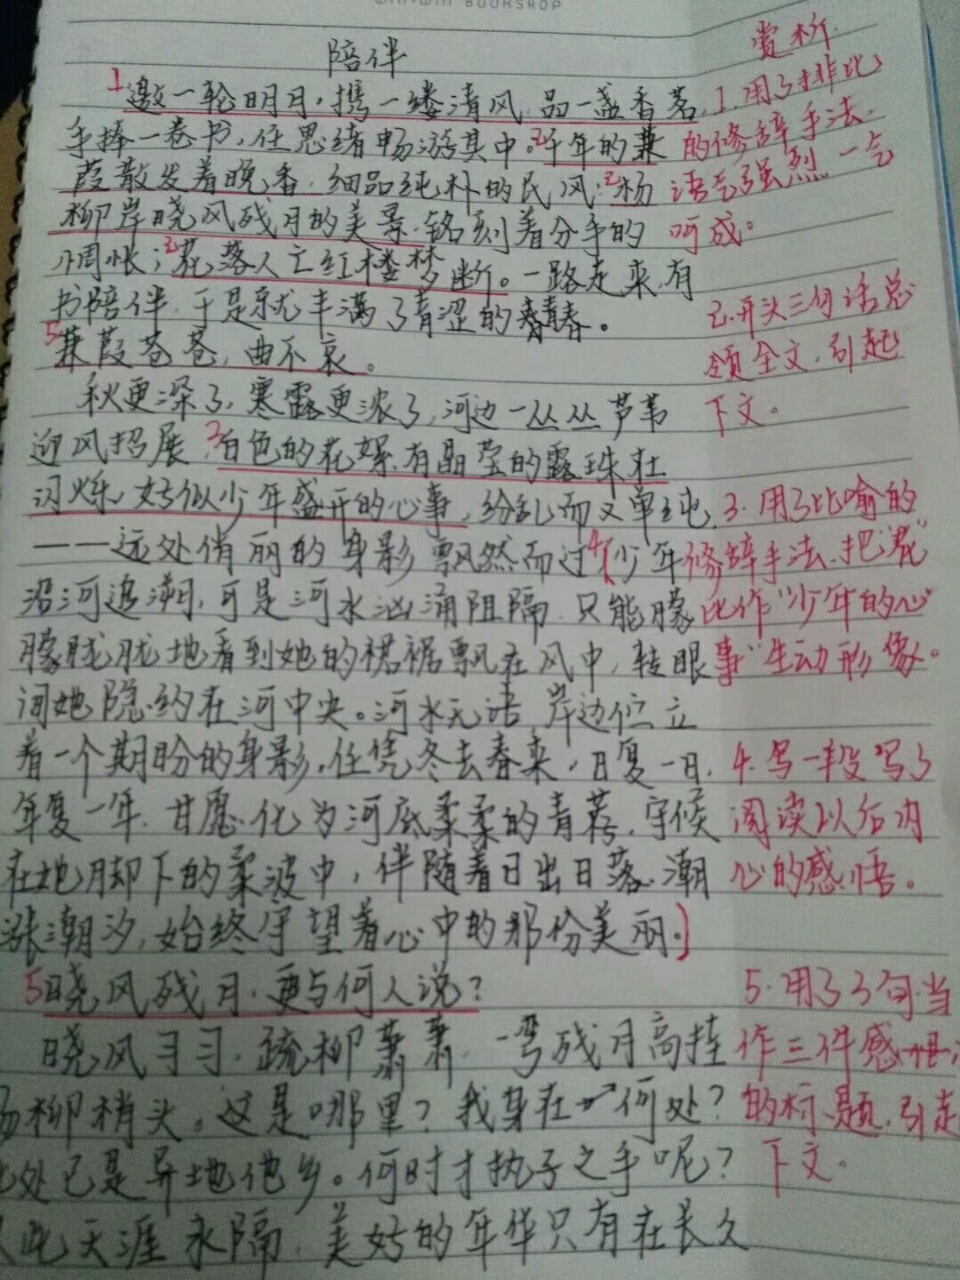 WIN-WIN BOOKSHOP
陪伴
赏析
1邀一轮明月,携一缕清风,品一盏香茗,
手捧一卷书,任思绪畅游其中。2千年的蒹
葭散发着晚香,细品纯朴的民风;2杨
柳岸晓风残月的美景,铭刻着分手的
惆怅;2花落人亡红楼梦断。一路走来,有
书陪伴,于是就丰满了青涩的青春。
5蒹葭苍苍,曲不哀。
秋更深了,寒露更浓了,河边一丛丛芦苇
迎风招展,3白色的花絮有晶莹的露珠在
闪烁,好似少年盛开的心事,纷乱而又单纯
——远处俏丽的身影飘然而过,4(少年
沿河追溯,可是河水汹涌阻隔,只能朦
朦胧胧地看到她的裙裾飘在风中,转眼
间她隐约在河中央。河水无语,岸边伫立
着一个期盼的身影,任凭冬去春来,日复一日,
年复一年,甘愿化为河底柔柔的青荇,守候
在她脚下的柔波中,伴随着日出日落,潮
涨潮汐,始终守望着心中的那份美丽。)
5晓风残月,更与何人说?
晓风习习,疏柳萧萧,一弯残月高挂
杨柳梢头。这是哪里?我身在何处?
此处已是异地他乡。何时才执子之手呢?
从此天涯永隔,美好的年华只有在长久
1.用了排比
的修辞手法.
语气强烈一气
呵成。
2.开头三句话总
领全文,引起
下文。
3.用了比喻的
修辞手法,把
比作"少年的心
事"生动形象。
4.写一段写了
阅读以后内
心的感悟。
5.用了3句当
作三件感
的标题,引起
下文。